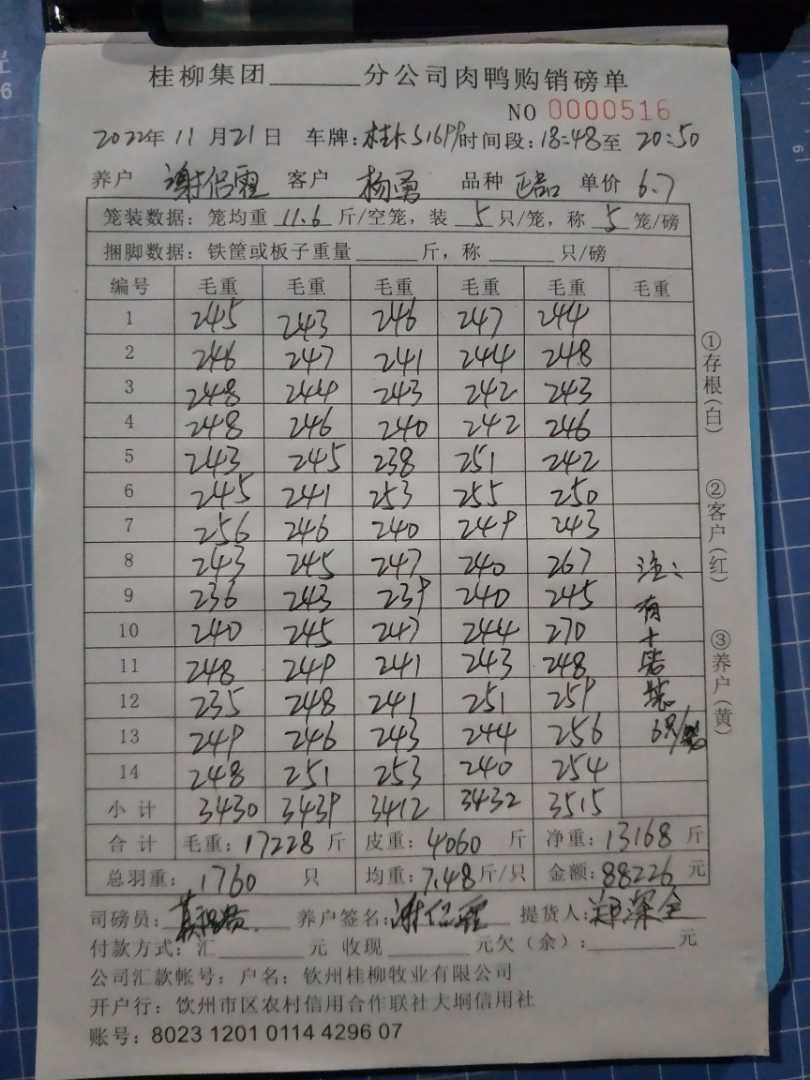 桂柳集团______分公司肉鸭购销磅单
NO 0000516
2022年11月21日 车牌:桂 S1699 时间段:18:48至 20:50
养户 谢侣霍 客户 杨勇 品种 正品 单价 6.7
笼装数据:笼均重 11.6 斤/空笼,装 5 只/笼,称 5 笼/磅
捆脚数据:铁筐或板子重量______斤,称______只/磅
编号 毛重 毛重 毛重 毛重 毛重 毛重
1 245 243 246 247 244
2 246 247 241 244 248
3 248 244 243 242 243
4 248 246 240 242 246
5 243 245 238 251 242
6 245 241 253 255 250
7 256 246 240 249 243
8 243 245 247 240 267
9 236 243 239 240 245
10 240 245 247 244 270
11 248 249 241 243 248
12 235 248 241 251 259
13 249 246 243 244 256
14 248 251 253 240 254
注:
有
十
笼
装
6只/笼
小计 3430 3439 3412 3432 3515
合计 毛重:17228斤 皮重:4060 斤 净重:13168 斤
总羽重:1760 只 均重:7.48斤/只 金额:88226元
司磅员: 养户签名:谢侣霍 提货人:
付款方式:汇______元 收现______元欠(余):______元
公司汇款帐号:户名:钦州桂柳牧业有限公司
开户行:饮州市区农村信用合作联社大垌信用社
账号:8023 1201 0114 4296 07
①存根(白)
②客户(红)
③养户(黄)